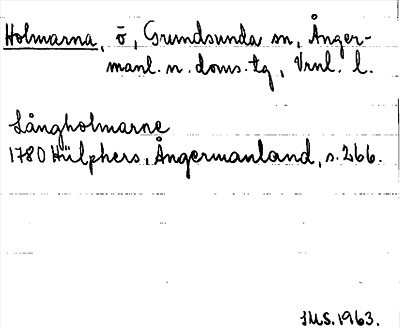 Holmarna, ö, Grundsunda sn, Ånger-
manl. n. doms. tg, Vrnl. l.
Långholmarne
1780 Hülphers, Ångermanland, s. 266.
IMS. 1963.